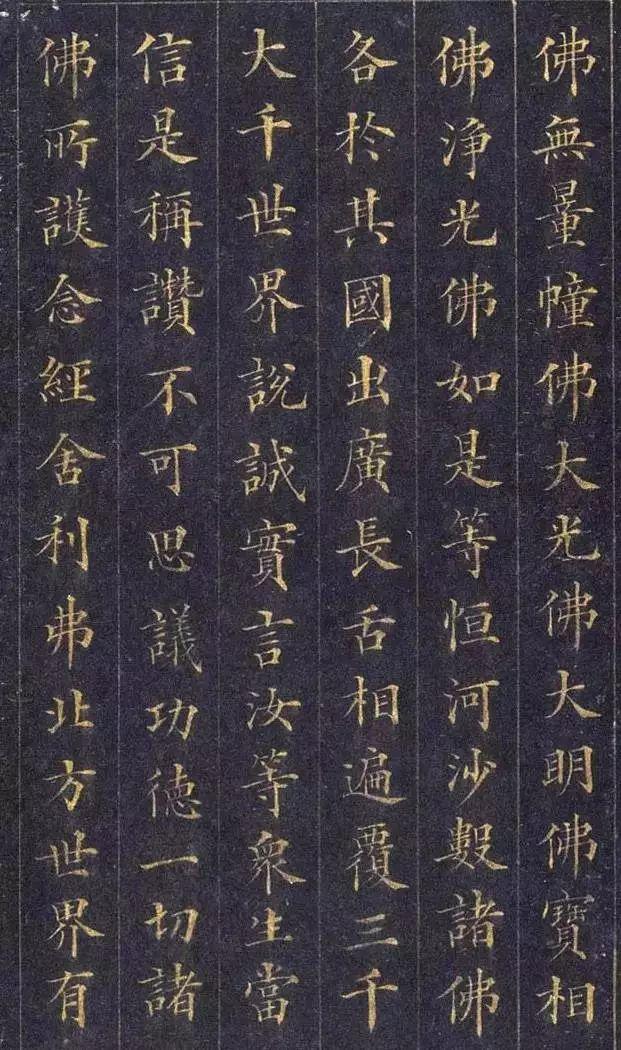 佛無量幢佛大光佛大明佛寶相
佛淨光佛如是等恒河沙數諸佛
各於其國出廣長舌相遍覆三千
大千世界說誠實言汝等眾生當
信是稱讚不可思議功德一切諸
佛所護念經舍利弗北方世界有